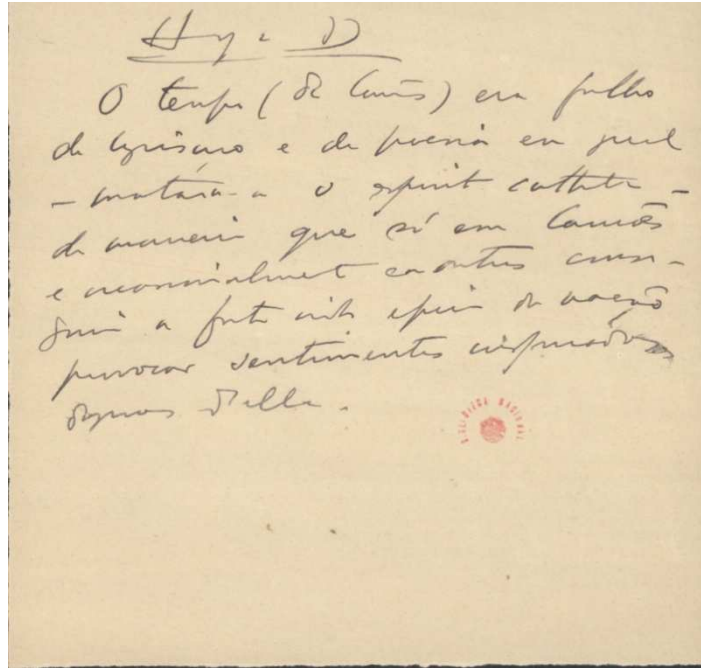 O tempo (de Camões) era falho
de lyrismo e de poesia em geral
– matára-a o espirito catholico –
de maneira que só em Camões
e occasionalmente em outros conse-
guiu a forte vida epica da nação
provocar sentimentos inspirados
dignos d'ella.
BIBLIOTECA NACIONAL